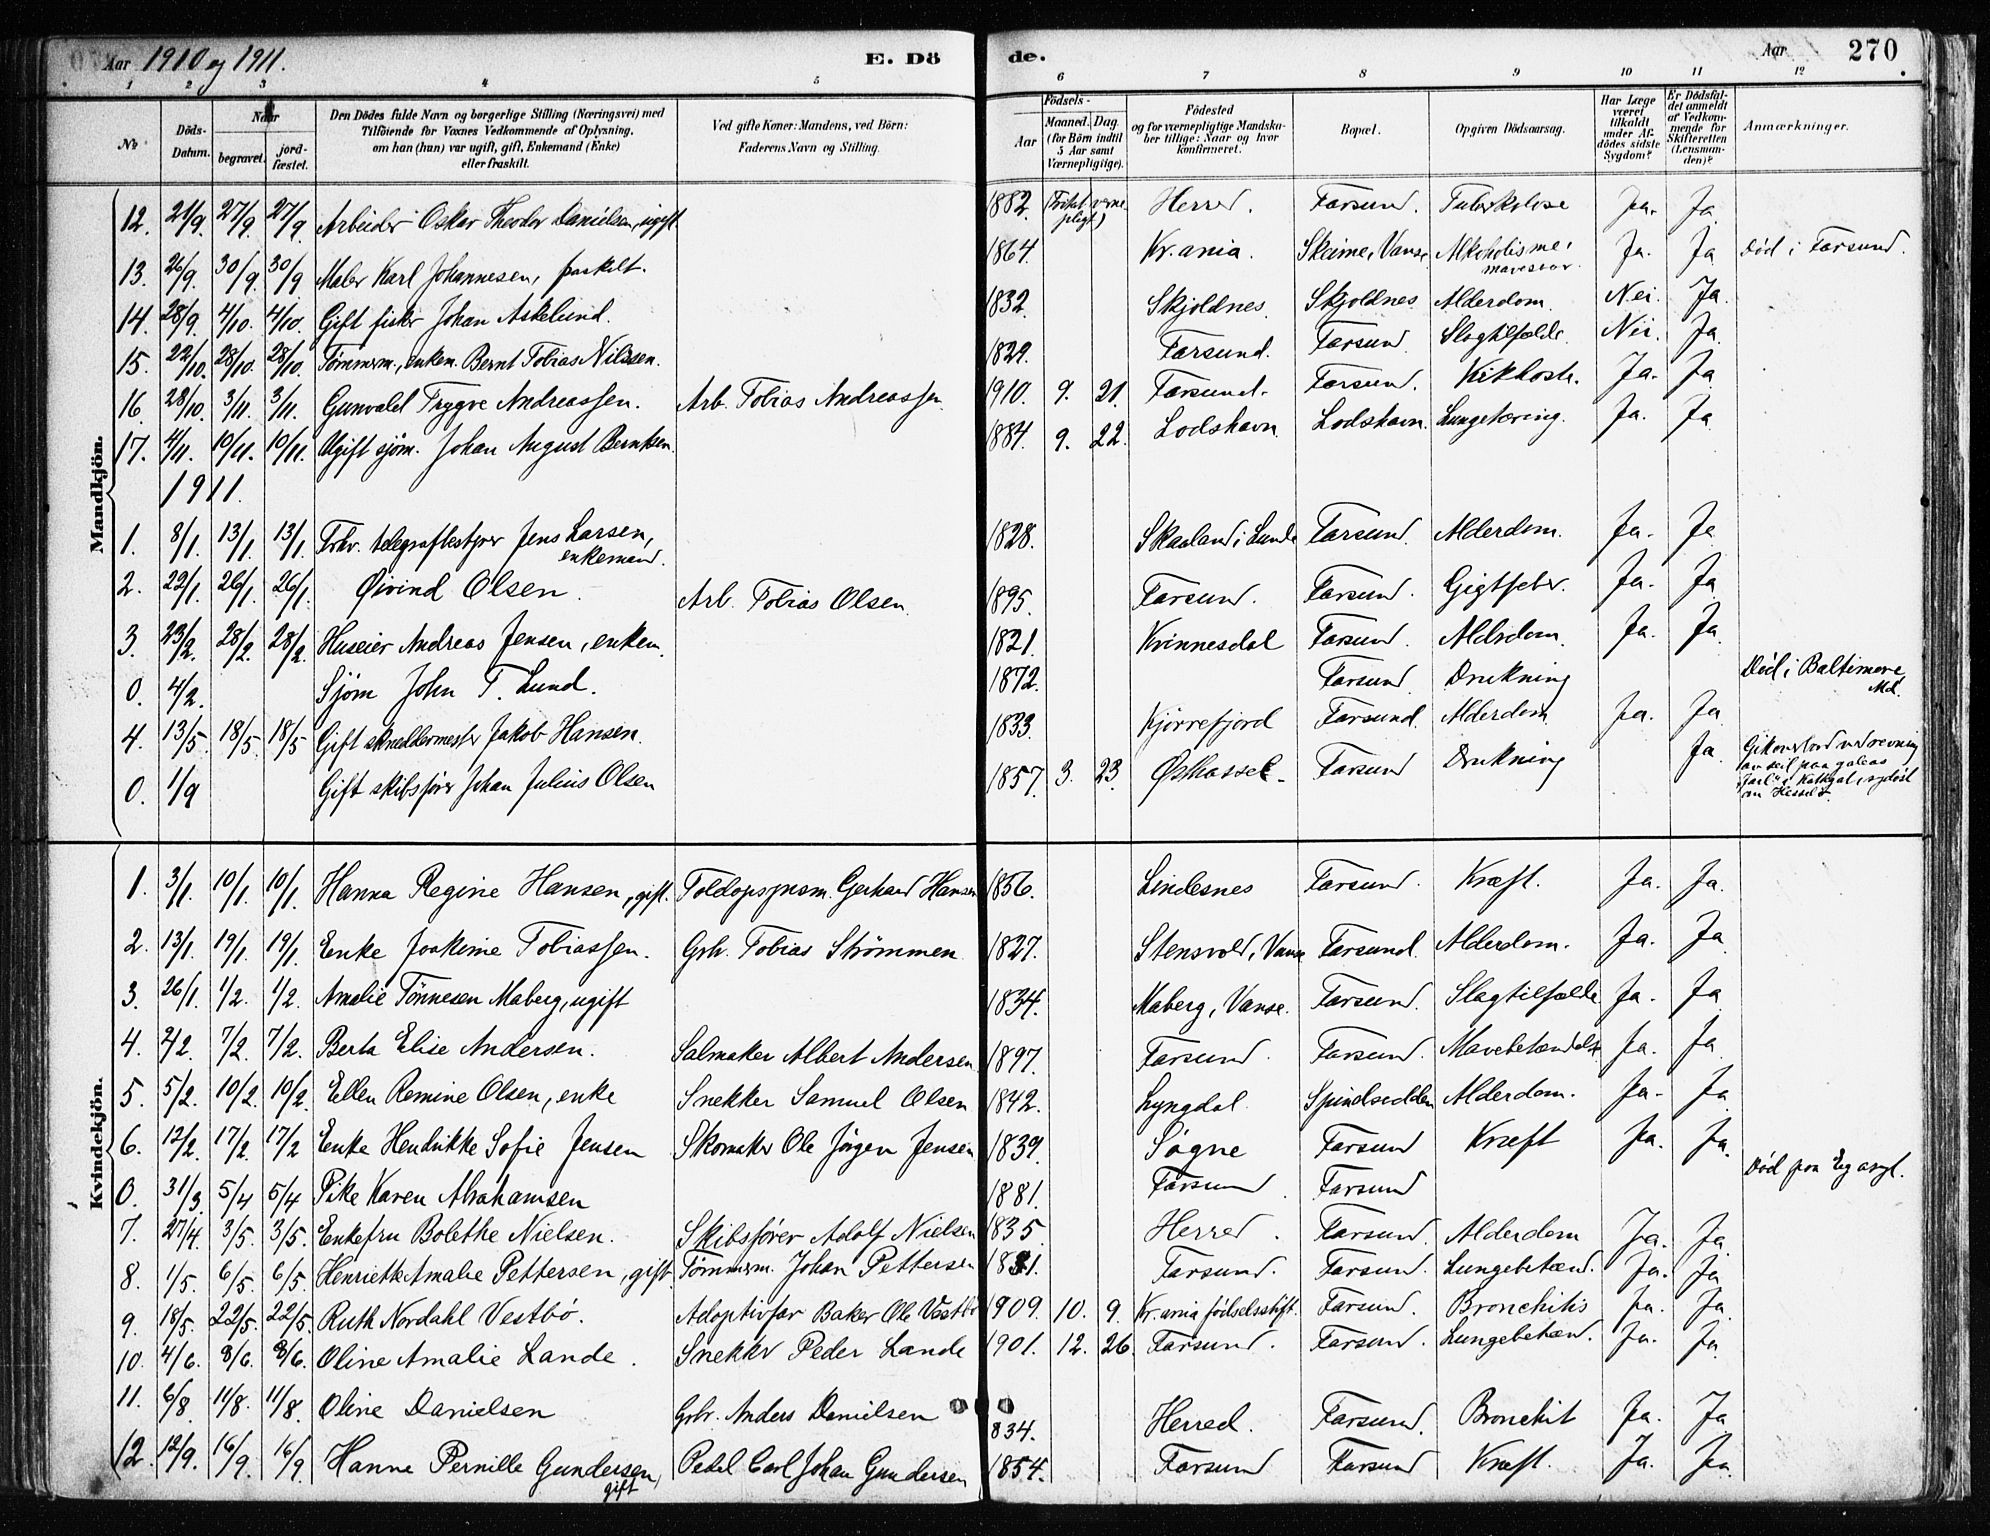 Aar 1910 og 1911. E. Dö de. Aar 270
1 2 3 4 5 6 7 8 9 10 11 12
No. Döds-Datum. Naar begravet. jordfæstet. Den Dödes fulde Navn og borgerlige Stilling (Næringsvei) med Tilföiende for Voxnes Vedkommende af Oplysning, om han (hun) var ugift, gift, Enkemand (Enke) eller fraskilt. Ved gifte Koner: Mandens, ved Börn: Faderens Navn og Stilling. Födsels- Aar Maaned. Dag. (for Börn indtil 5 Aar samt Værnepligtige). Födested og for værnepligtige Mandskaber tillige: Naar og hvor konfirmeret. Bopæl. Opgiven Dödsaarsag. Har Læge været tilkaldt under Afdödes sidste Sygdom? Er Dödsfaldet anmeldt af Vedkommende for Skifteretten (Lensmanden)? Anmærkninger.
Mandkjön.
12. 21/9. 27/9. 27/9. Arbeider Oskar Theodor Danielsen, ugift 1882. Herred. Farsund. Tuberkulose Ja. Ja
13. 26/9. 30/9. 30/9 Maler Karl Johannesen, fraskilt. 1864. Kr.ania. Skeime, Vanse Alkoholisme, mavesaar. Ja. Ja Död i Farsund.
14. 28/9. 4/10. 4/10. Gift fisker Johan Askelund. 1832. Skjoldnes. Skjoldnes Alderdom. Nei. Ja.
15. 22/10. 28/10. 28/10. Tømmerm., enkem. Bernt Tobias Nilssen. 1829. Farsund. Farsund. Slagtilfælde. Nei. Ja.
16. 28/10. 3/11. 3/11. Gunvald Trygve Andreassen. Arb. Tobias Andreassen 1910. 9. 21. Farsund. Farsund. Kikhoste. Ja. Ja
17. 4/11. 10/11. 10/11. Ugift sjøm. Johan August Berntsen. 1884. 9. 22. Lodshavn Lodshavn. Lungetæring. Ja. Ja
1911.
1. 8/1. 13/1. 13/1. Fhv. telegrafbestyrer Jens Larsen, enkemand. 1828. Skaaland i Lunde Farsund. Alderdom. Ja. Ja
2. 22/1. 26/1. 26/1. Øivind Olsen. Arb. Tobias Olsen. 1895. Farsund. Farsund. Gigtfeber. Ja. Ja
3. 23/2. 28/2. 28/2. Huseier Andreas Jensen, enkem. 1821. Kvinnesdal Farsund. Alderdom. Ja. Ja.
0. 4/2. Sjøm John T. Lund. 1872. Farsund Drukning Død i Baltimore, Md.
4. 13/5. 18/5. 18/5 Gift skreddermester Jakob Hansen. 1833. Kjørrefjord Farsund. Alderdom. Ja. Ja
0. 1/9 Gift skibsfører Johan Julius Olsen 1857. 3. 23. Østhassel. Farsund Drukning Ja. Gik overbord ved revning av seil paa galeas "Jarl" i Kattegat, sydøst om Hesselø.
Kvindekjön.
1. 3/1. 10/1. 10/1. Hanna Regine Hansen, gift. Toldopsynsm. Gerhard Hansen 1856. Lindesnes Farsund. Kræft. Ja. Ja.
2. 13/1. 19/1. 19/1. Enke Joakime Tobiassen. Grb. Tobias Strømmen 1827. Stensvold, Vanse Farsund. Alderdom. Ja. Ja
3. 26/1. 1/2. 1/2. Amalie Tønnesen Maberg, ugift 1834. Maberg, Vanse. Farsund. Slagtilfælde Ja. Ja
4. 2/2. 7/2. 7/2. Berta Elise Andersen. Salmaker Albert Andersen 1897. Farsund. Farsund. Mavebetændelse Ja. Ja
5. 5/2. 10/2. 10/2. Ellen Remine Olsen, enke Snekker Samuel Olsen 1842. Lyngdal. Spindsodden Alderdom. Ja. Ja
6. 12/2. 17/2. 17/2 Enke Hendrikke Sofie Jensen Skomaker Ole Jørgen Jensen 1839. Søgne Farsund Kræft Ja. Ja.
0. 31/3. 5/4 5/4 Pike Karen Abrahamsen 1881. Farsund. Farsund Død paa Eg asyl.
7. 27/4. 3/5. 3/5. Enkefru Bolethe Nielsen. Skibsfører Adolf Nielsen 1835. Herred. Farsund. Alderdom Ja. Ja.
8. 1/5. 6/5. 6/5. Henriette Amalie Pettersen, gift Tømmerm. Johan Pettersen Farsund. Farsund. Lungebetænd. Ja. Ja
9. 18/5. 22/5. 22/5. Ruth Nordahl Vestbø. Adoptivfar Baker Ole Vestbø 1909. 10. 9. Kr.ania fødselsstift. Farsund. Bronchitis Ja. Ja.
10. 4/6. 8/6. 8/6. Oline Amalie Lande. Snekker Peder Lande 1901. 12. 26. Farsund. Farsund. Lungebetænd. Ja. Ja.
11. 6/8. 11/8. 11/8. Oline Danielsen Grbr. Anders Danielsen 834. Herred. Farsund. Bronchit Ja. Ja
12. 12/9. 16/9. 16/9. Hanne Pernille Gundersen, gift Pedel Carl Johan Gundersen 1854. Farsund Farsund Kræft. Ja. Ja.